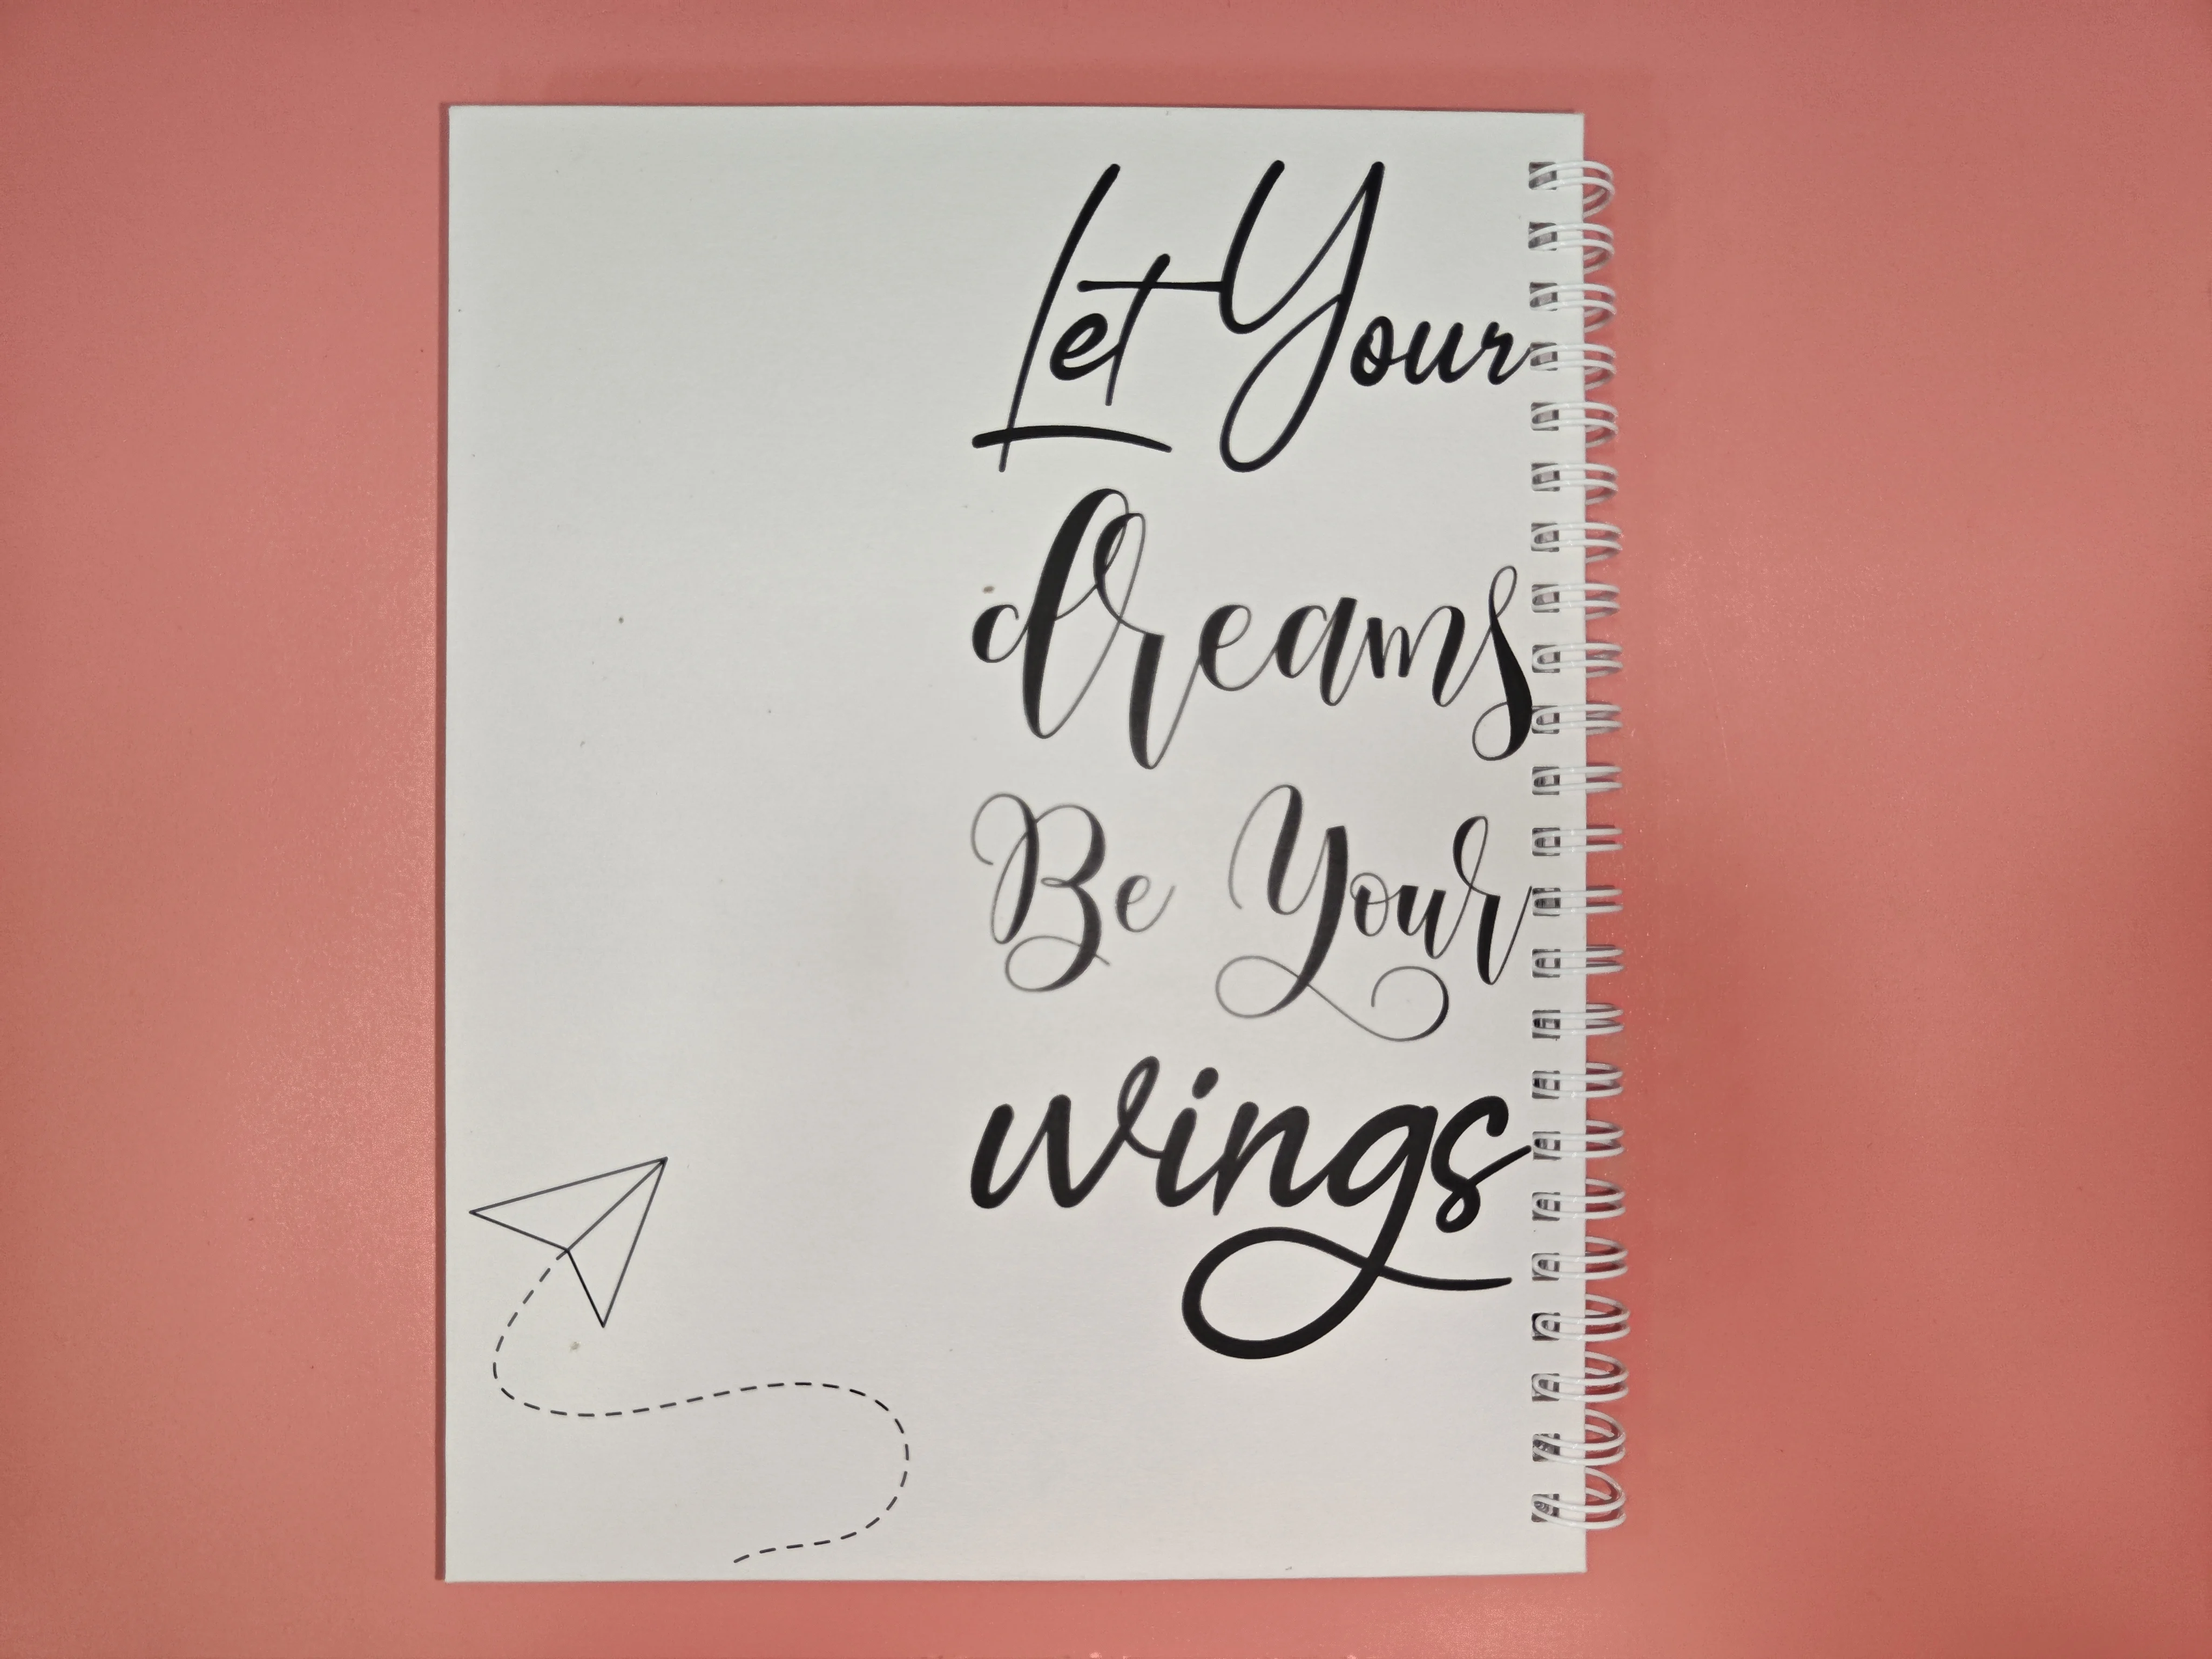 Let Your
dreams
Be Your
wings